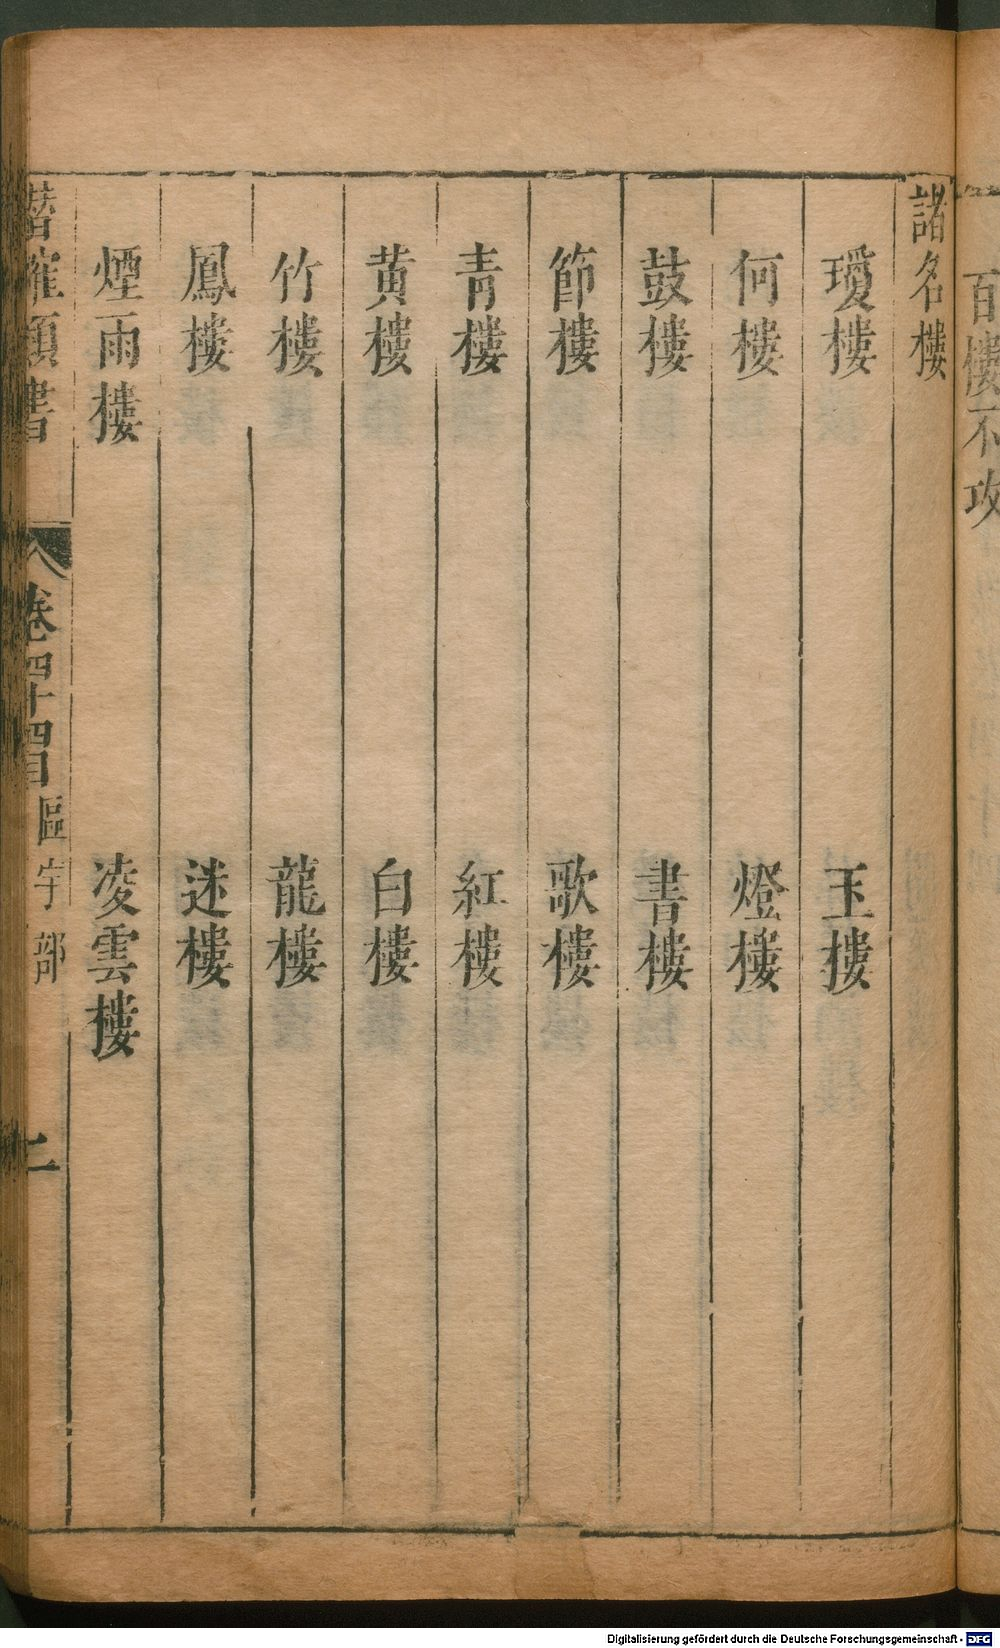 百樓不攻
諸名樓
璦樓 玉樓
何樓 燈樓
鼓樓 書樓
節樓 歌樓
青樓 紅樓
黄樓 白樓
竹樓 龍樓
鳳樓 迷樓
煙雨樓 凌雲樓
潛確類書 卷四十四目 區宇部 二
Digitalisierung gefördert durch die Deutsche Forschungsgemeinschaft - DFG